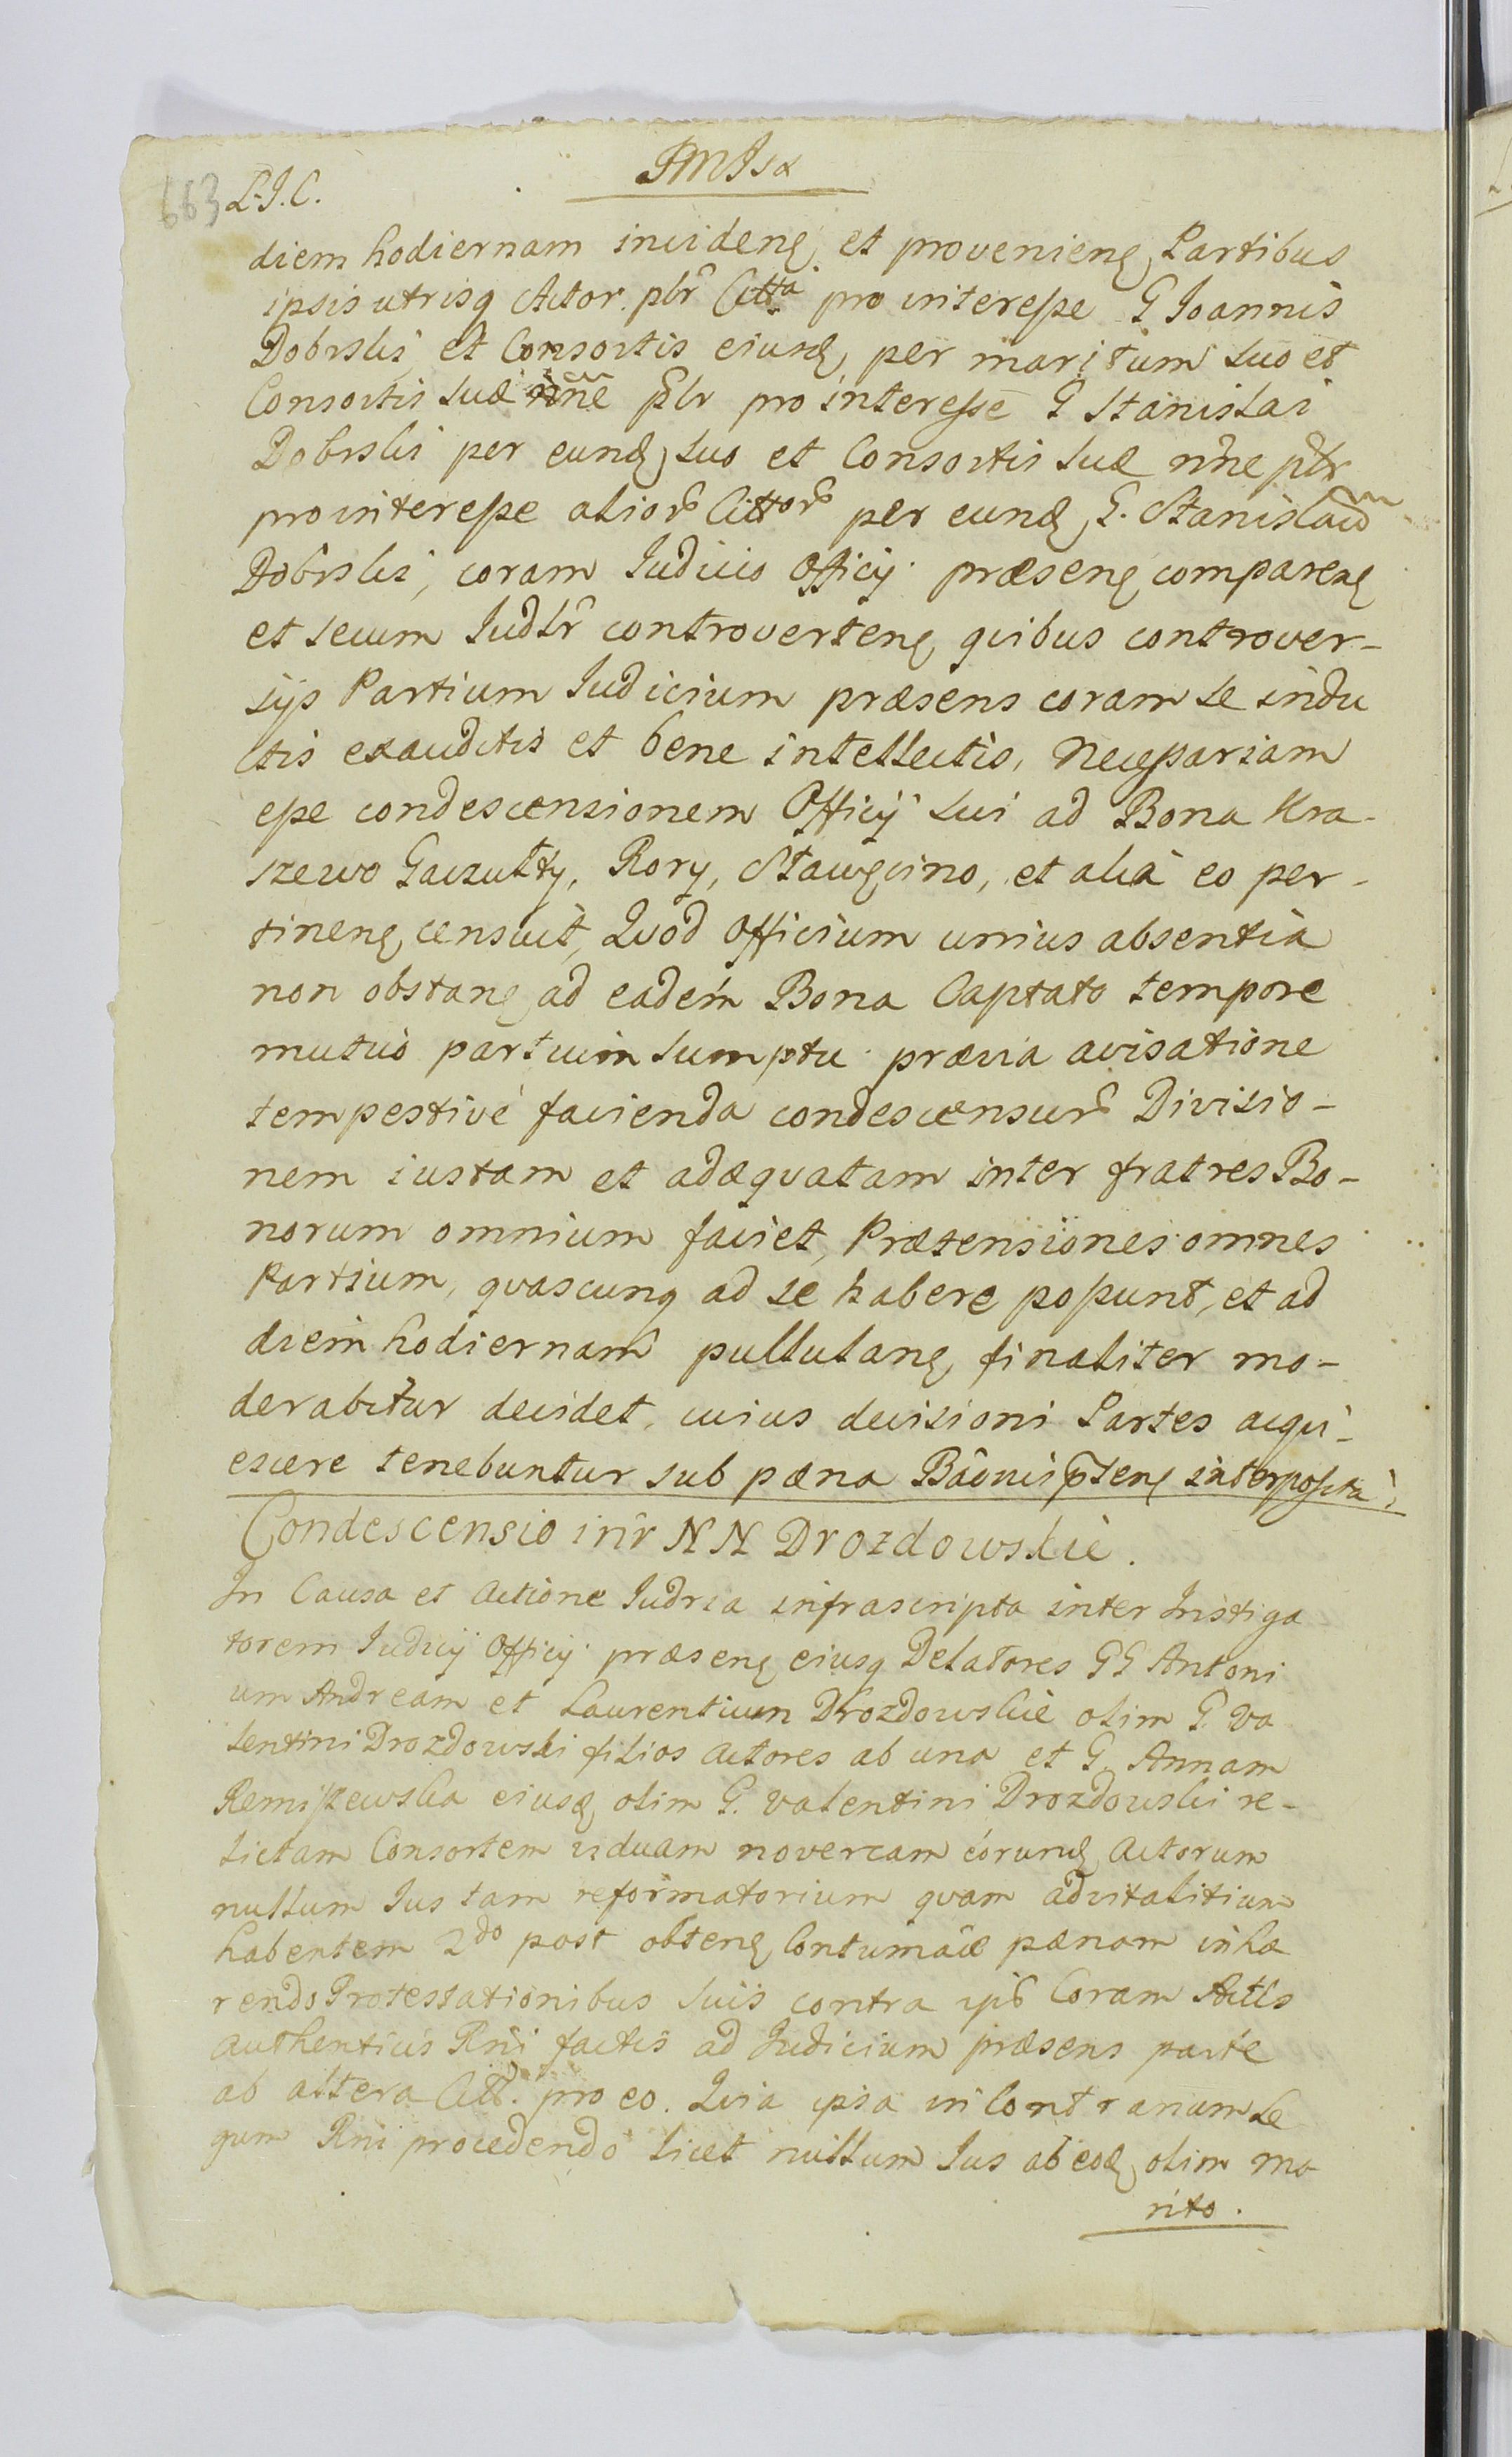 663 L.I.C.
diem hodiernam incidenę et provenienę Partibus
ipsis utrisq Actor. plr Citta pro interesse G Joannis
Dobrski et Consortis eiusdę per maritum suo et
Consortis suæ nne plr pro interesse G Stanislai
Dobrski per eundę suo et Consortis suæ nne plr
pro interesse alior Cittor per eundę G. Stanislaum
Dobrski, coram Iudicio Officij præsenę comparenę
et secum Iudlr controvertenę quibus controver-
sijs Partium Iudicium præsens coram se indu
ctis exauditis et bene intellectis, Necessariam
esse condescensionem Officij sui ad Bona Kra-
szewo Gaczułty, Rory, Sławęcino, et alia eo per-
tinenę censuit, Quod Officium unius absentia
non obstanę ad eadem Bona Captato tempore
mutuo partium sumptu prævia avisatione
tempestive facienda condescensur Divisio-
nem iustam et adæquatam inter fratres Bo-
norum omnium faciet, Prætensiones omnes
Partium, quascunq ad se habere possunt, et ad
diem hodiernam pullulanę, finaliter mo-
derabitur decidet, cuius decisioni Partes acqui-
escere tenebuntur sub pæna Bâonis ptenę interposita.
Condescensio intr N N Drozdowskie.
In Causa et Actione Iudria infrascripta inter Instiga
torem Iudicij Officij præsenę eiusq Delatores GG Antoni
um Andream et Laurentium Drozdowskie olim G. Va
lentini Drozdowski filios Actores ab una et G. Annam
Remiszewska eiusdę olim G. Valentini Drozdowski re-
lictam Consortem viduam novercam eorundę Actorum
nullum Ius tam reformatorium quam advitalitium
habentem 2do post obtenę Contumâiæ pænam inhæ
rendo Protestationibus suis contra ips Coram Actis
Authenticis Rni factis ad Iudicium præsens parte
ab altera Citt. pro eo. Quia ipsa in Contrarium Le
gum Rni procedendo licet nullum Us ab eodę olim ma
rito.